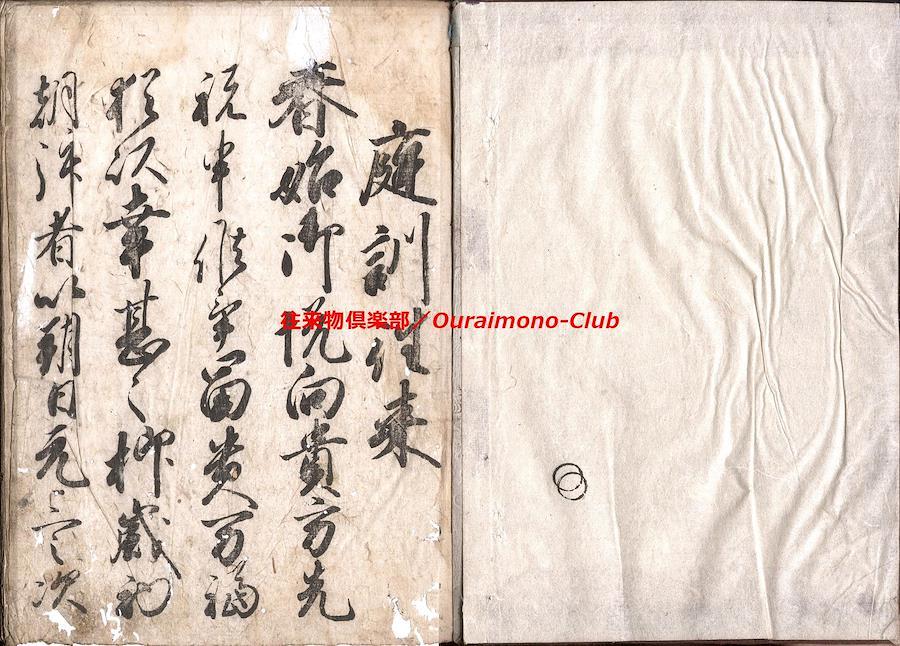 庭訓徃来
春始御悦向貴方先
祝申候畢冨貴万福
猶以幸甚々抑歳初
朝拝者以朔日元三之次
往来物倶楽部／Ouraimono-Club